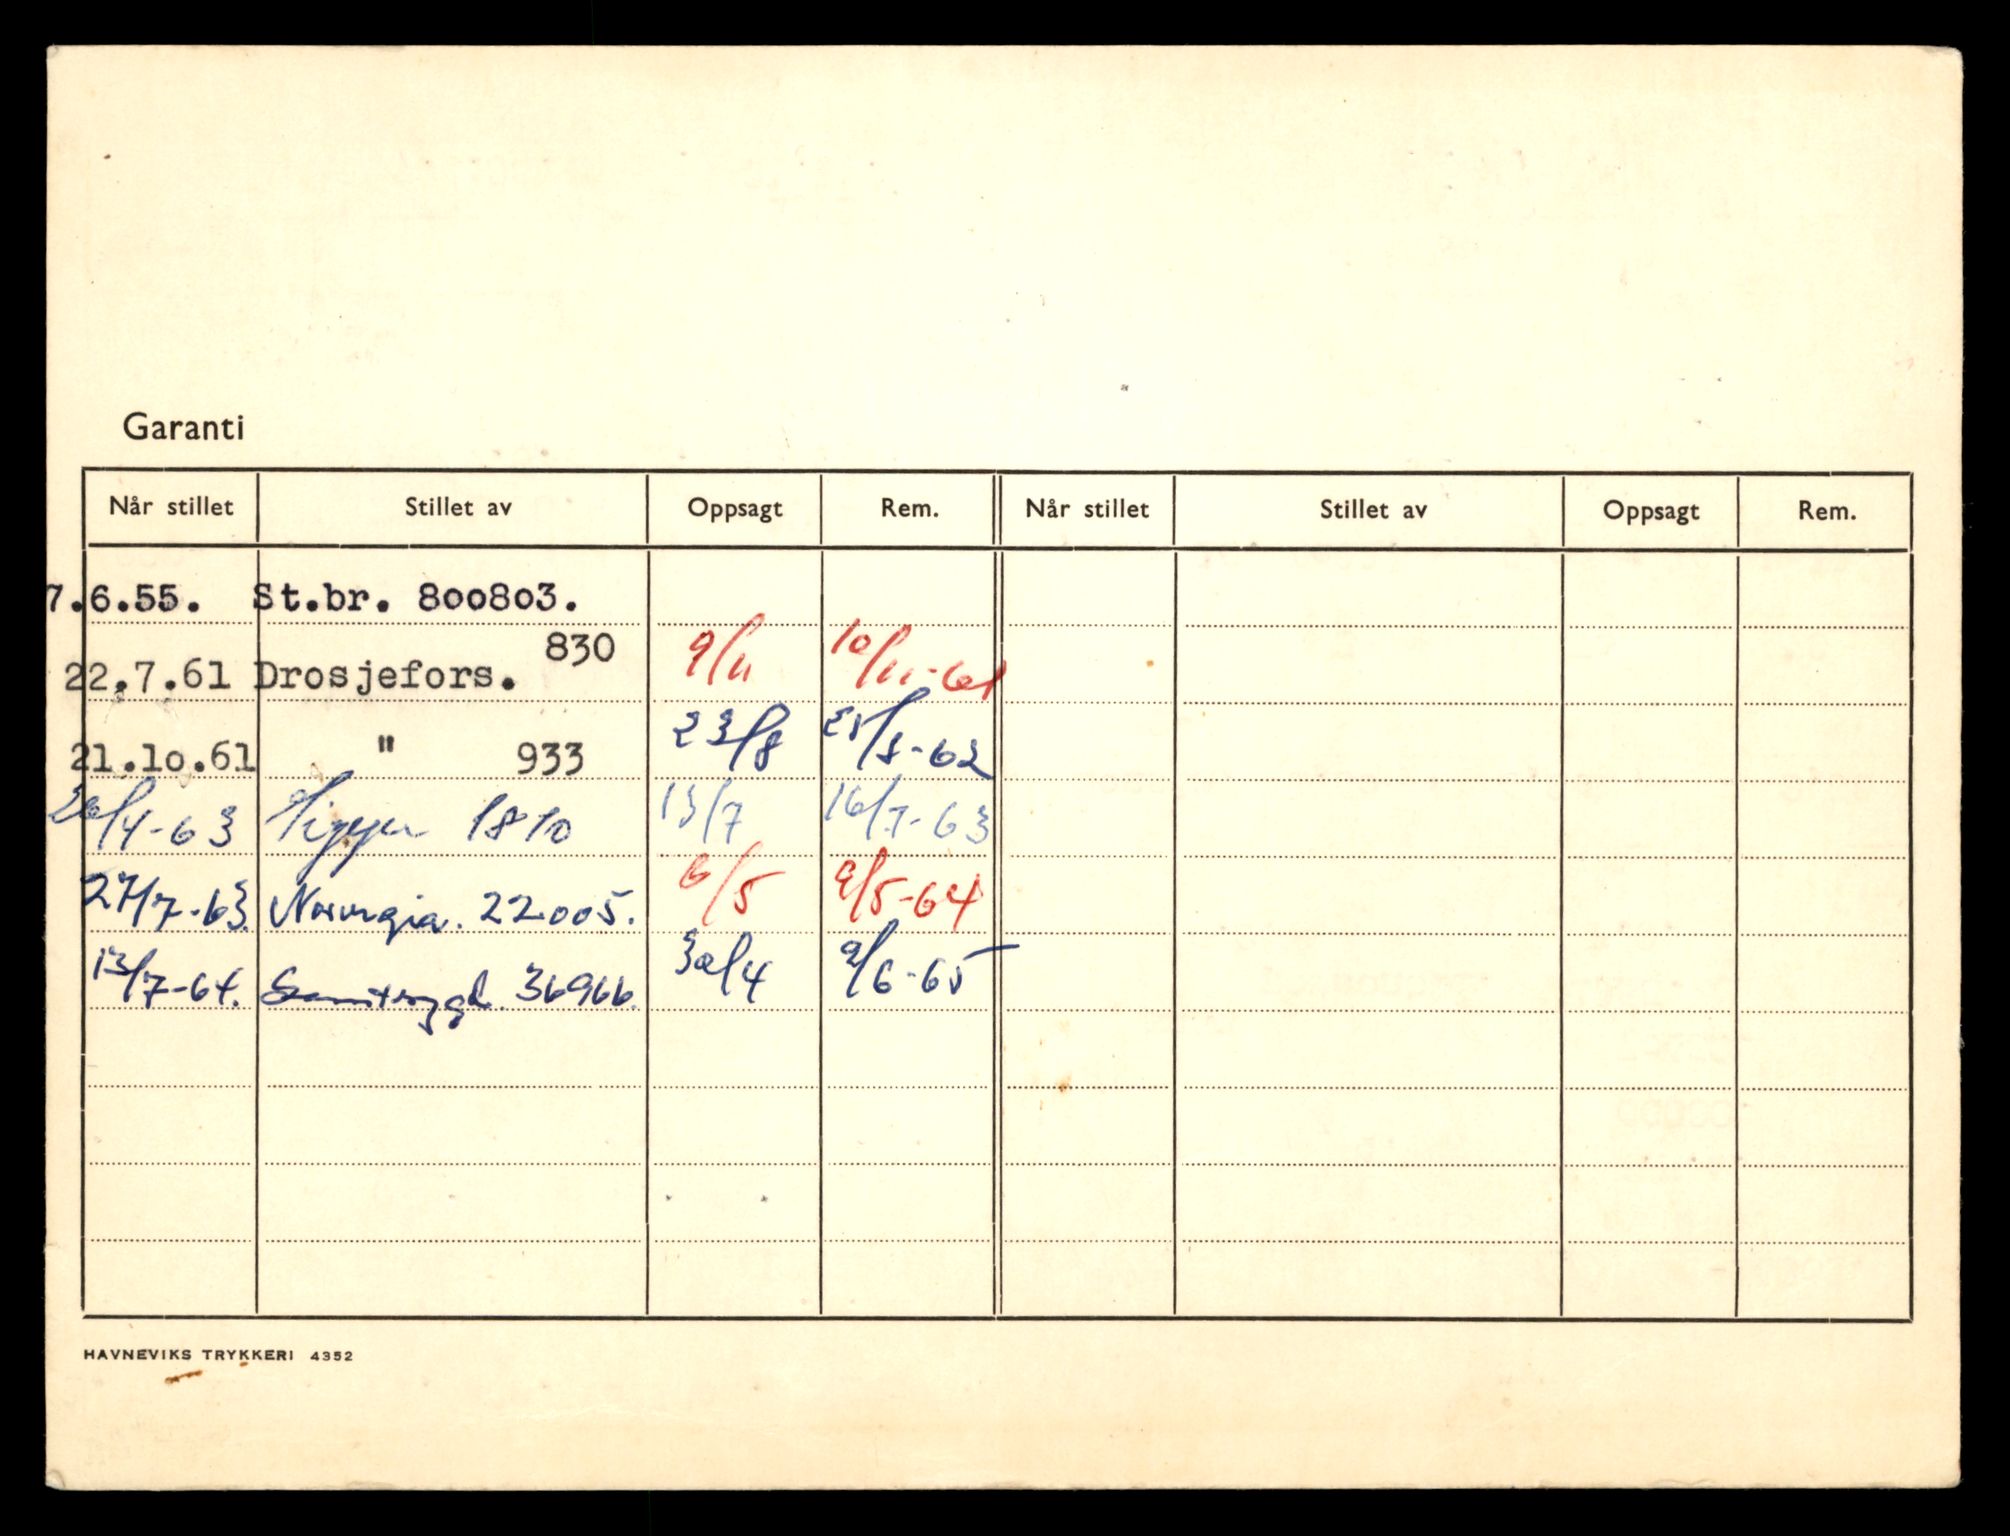 Garanti
Når stillet Stillet av Oppsagt Rem. Når stillet Stillet av Oppsagt Rem.
7.6.55. St.br. 800803.
22.7.61 Drosjefors. 830 9/11 10/11-61
21.10.61 " 933 23/8 25/8-62
26/4-63 1810 13/7 16/7-63
27/7-63. Norvegia. 22005. 6/5 9/5-64
13/7-64. Samtrygd. 36966. 30/4 9/6-65
HAVNEVIKS TRYKKERI 4352